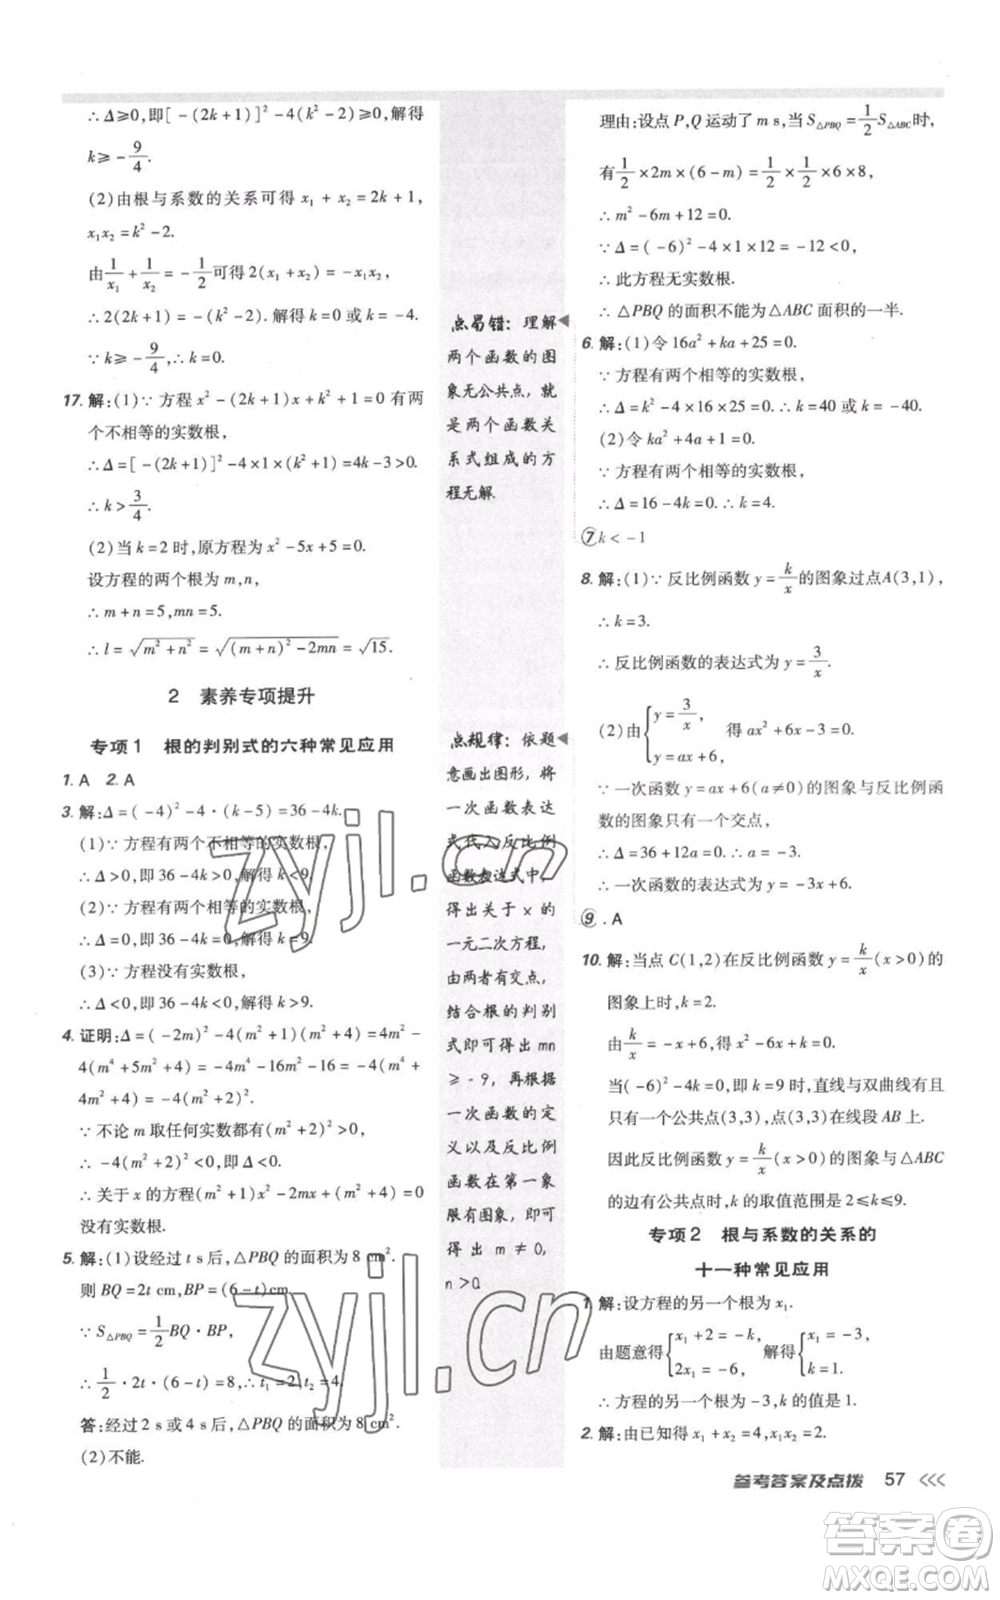 ∴ Δ≥0,即[-(2k+1)]²-4(k²-2)≥0,解得
k≥-9/4.
(2)由根与系数的关系可得 x₁+x₂=2k+1,
x₁x₂=k²-2.
由1/x₁+1/x₂=-1/2可得2(x₁+x₂)=-x₁x₂,
∴ 2(2k+1)=-(k²-2).解得 k=0 或 k=-4.
∵ k≥-9/4,∴ k=0.
17. 解:(1)∵ 方程 x²-(2k+1)x+k²+1=0 有两
个不相等的实数根,
∴ Δ=[-(2k+1)]²-4×1×(k²+1)=4k-3>0.
∴ k>3/4.
(2)当 k=2 时,原方程为 x²-5x+5=0.
设方程的两个根为 m,n,
∴ m+n=5,mn=5.
∴ l=√(m²+n²)=√((m+n)²-2mn)=√15.
2 素养专项提升
专项1 根的判别式的六种常见应用
1. A 2. A
3. 解:Δ=(-4)²-4·(k-5)=36-4k.
(1)∵ 方程有两个不相等的实数根,
∴ Δ>0,即 36-4k>0,解得 k<9.
(2)∵ 方程有两个相等的实数根,
∴ Δ=0,即 36-4k=0,解得 k=9.
(3)∵ 方程没有实数根,
∴ Δ<0,即 36-4k<0,解得 k>9.
4. 证明:Δ=(-2m)²-4(m²+1)(m²+4)=4m²-
4(m⁴+5m²+4)=-4m⁴-16m²-16=-4(m⁴+
4m²+4)=-4(m²+2)².
∵ 不论 m 取任何实数都有(m²+2)²>0,
∴ -4(m²+2)²<0.
∴ 关于 x 的方程(m²+1)x²-2mx+(m²+4)=0
没有实数根.
5. 解:(1)设经过 t s后,△PBQ 的面积为 8 cm².
则 BQ=2t cm,BP=(6-t)cm.
∵ S△PBQ=1/2BQ·BP,
∴ 1/2·2t·(6-t)=8,∴ t₁=2,t₂=4.
答:经过 2 s 或 4 s后,△PBQ 的面积为 8 cm².
(2)不能.
点易错:理解
两个函数的图
象无公共点,就
是两个函数关
系式组成的方
程无解.
点规律:依题
意画出图形,将
一次函数表达
式代入反比例
函数表达式中,
得出关于 x 的
一元二次方程,
由两者有交点,
结合根的判别
式即可得出 mn
≥-9,再根据
一次函数的定
义以及反比例
函数在第一象
限有图象,可
得出 m≠0,
n>0.
理由:设点 P,Q 运动了 m s,当 S△PBQ=1/2S△ABC时,
有1/2×2m×(6-m)=1/2×1/2×6×8,
∴ m²-6m+12=0.
∵ Δ=(-6)²-4×1×12=-12<0,
∴ 此方程无实数根.
∴ △PBQ 的面积不能为△ABC 面积的一半.
6. 解:(1)令 16a²+ka+25=0.
∵ 方程有两个相等的实数根,
∴ Δ=k²-4×16×25=0.∴ k=40 或 k=-40.
(2)令 ka²+4a+1=0.
∵ 方程有两个相等的实数根,
∴ Δ=16-4k=0.∴ k=4.
⑦ k<-1
8. 解:(1)∵ 反比例函数 y=k/x的图象过点A(3,1),
∴ k=3.
∴ 反比例函数的表达式为 y=3/x.
(2)由{y=3/x, y=ax+6, 得 ax²+6x-3=0,
∵ 一次函数 y=ax+6(a≠0)的图象与反比例函
数的图象只有一个交点,
∴ Δ=36+12a=0.∴ a=-3.
∴ 一次函数的表达式为 y=-3x+6.
⑨. A
10. 解:当点 C(1,2)在反比例函数 y=k/x(x>0)的
图象上时,k=2.
由k/x=-x+6,得 x²-6x+k=0.
当(-6)²-4k=0,即 k=9 时,直线与双曲线有且
只有一个公共点(3,3),点(3,3)在线段 AB 上.
因此反比例函数 y=k/x(x>0)的图象与△ABC
的边有公共点时,k 的取值范围是 2≤k≤9.
专项2 根与系数的关系的
十一种常见应用
1. 解:设方程的另一个根为 x₁.
由题意得{x₁+2=-k, 2x₁=-6, 解得{x₁=-3, k=1.
∴ 方程的另一个根为-3,k 的值是 1.
2. 解:由已知得 x₁+x₂=4,x₁x₂=2.
参考答案及点拨 57 <<<
zyjl.cn
zyjl.cn
答案圈
MXQE.COM